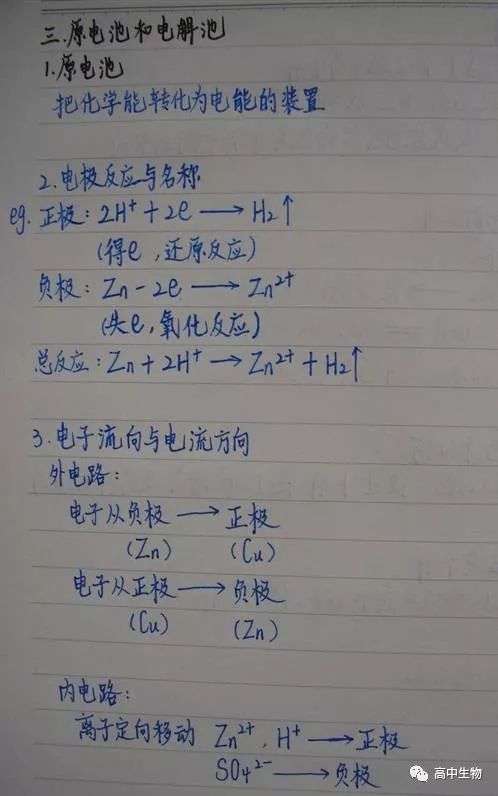 三.原电池和电解池
1.原电池
把化学能转化为电能的装置
2.电极反应与名称
eg. 正极：2H⁺+2e⟶H₂↑
(得e，还原反应)
负极：Zn-2e⟶Zn²⁺
(失e，氧化反应)
总反应：Zn+2H⁺⟶Zn²⁺+H₂↑
3.电子流向与电流方向
外电路：
电子从负极⟶正极
(Zn) (Cu)
电子从正极⟶负极
(Cu) (Zn)
内电路：
离子定向移动 Zn²⁺、H⁺⟶正极
SO₄²⁻⟶负极
高中生物